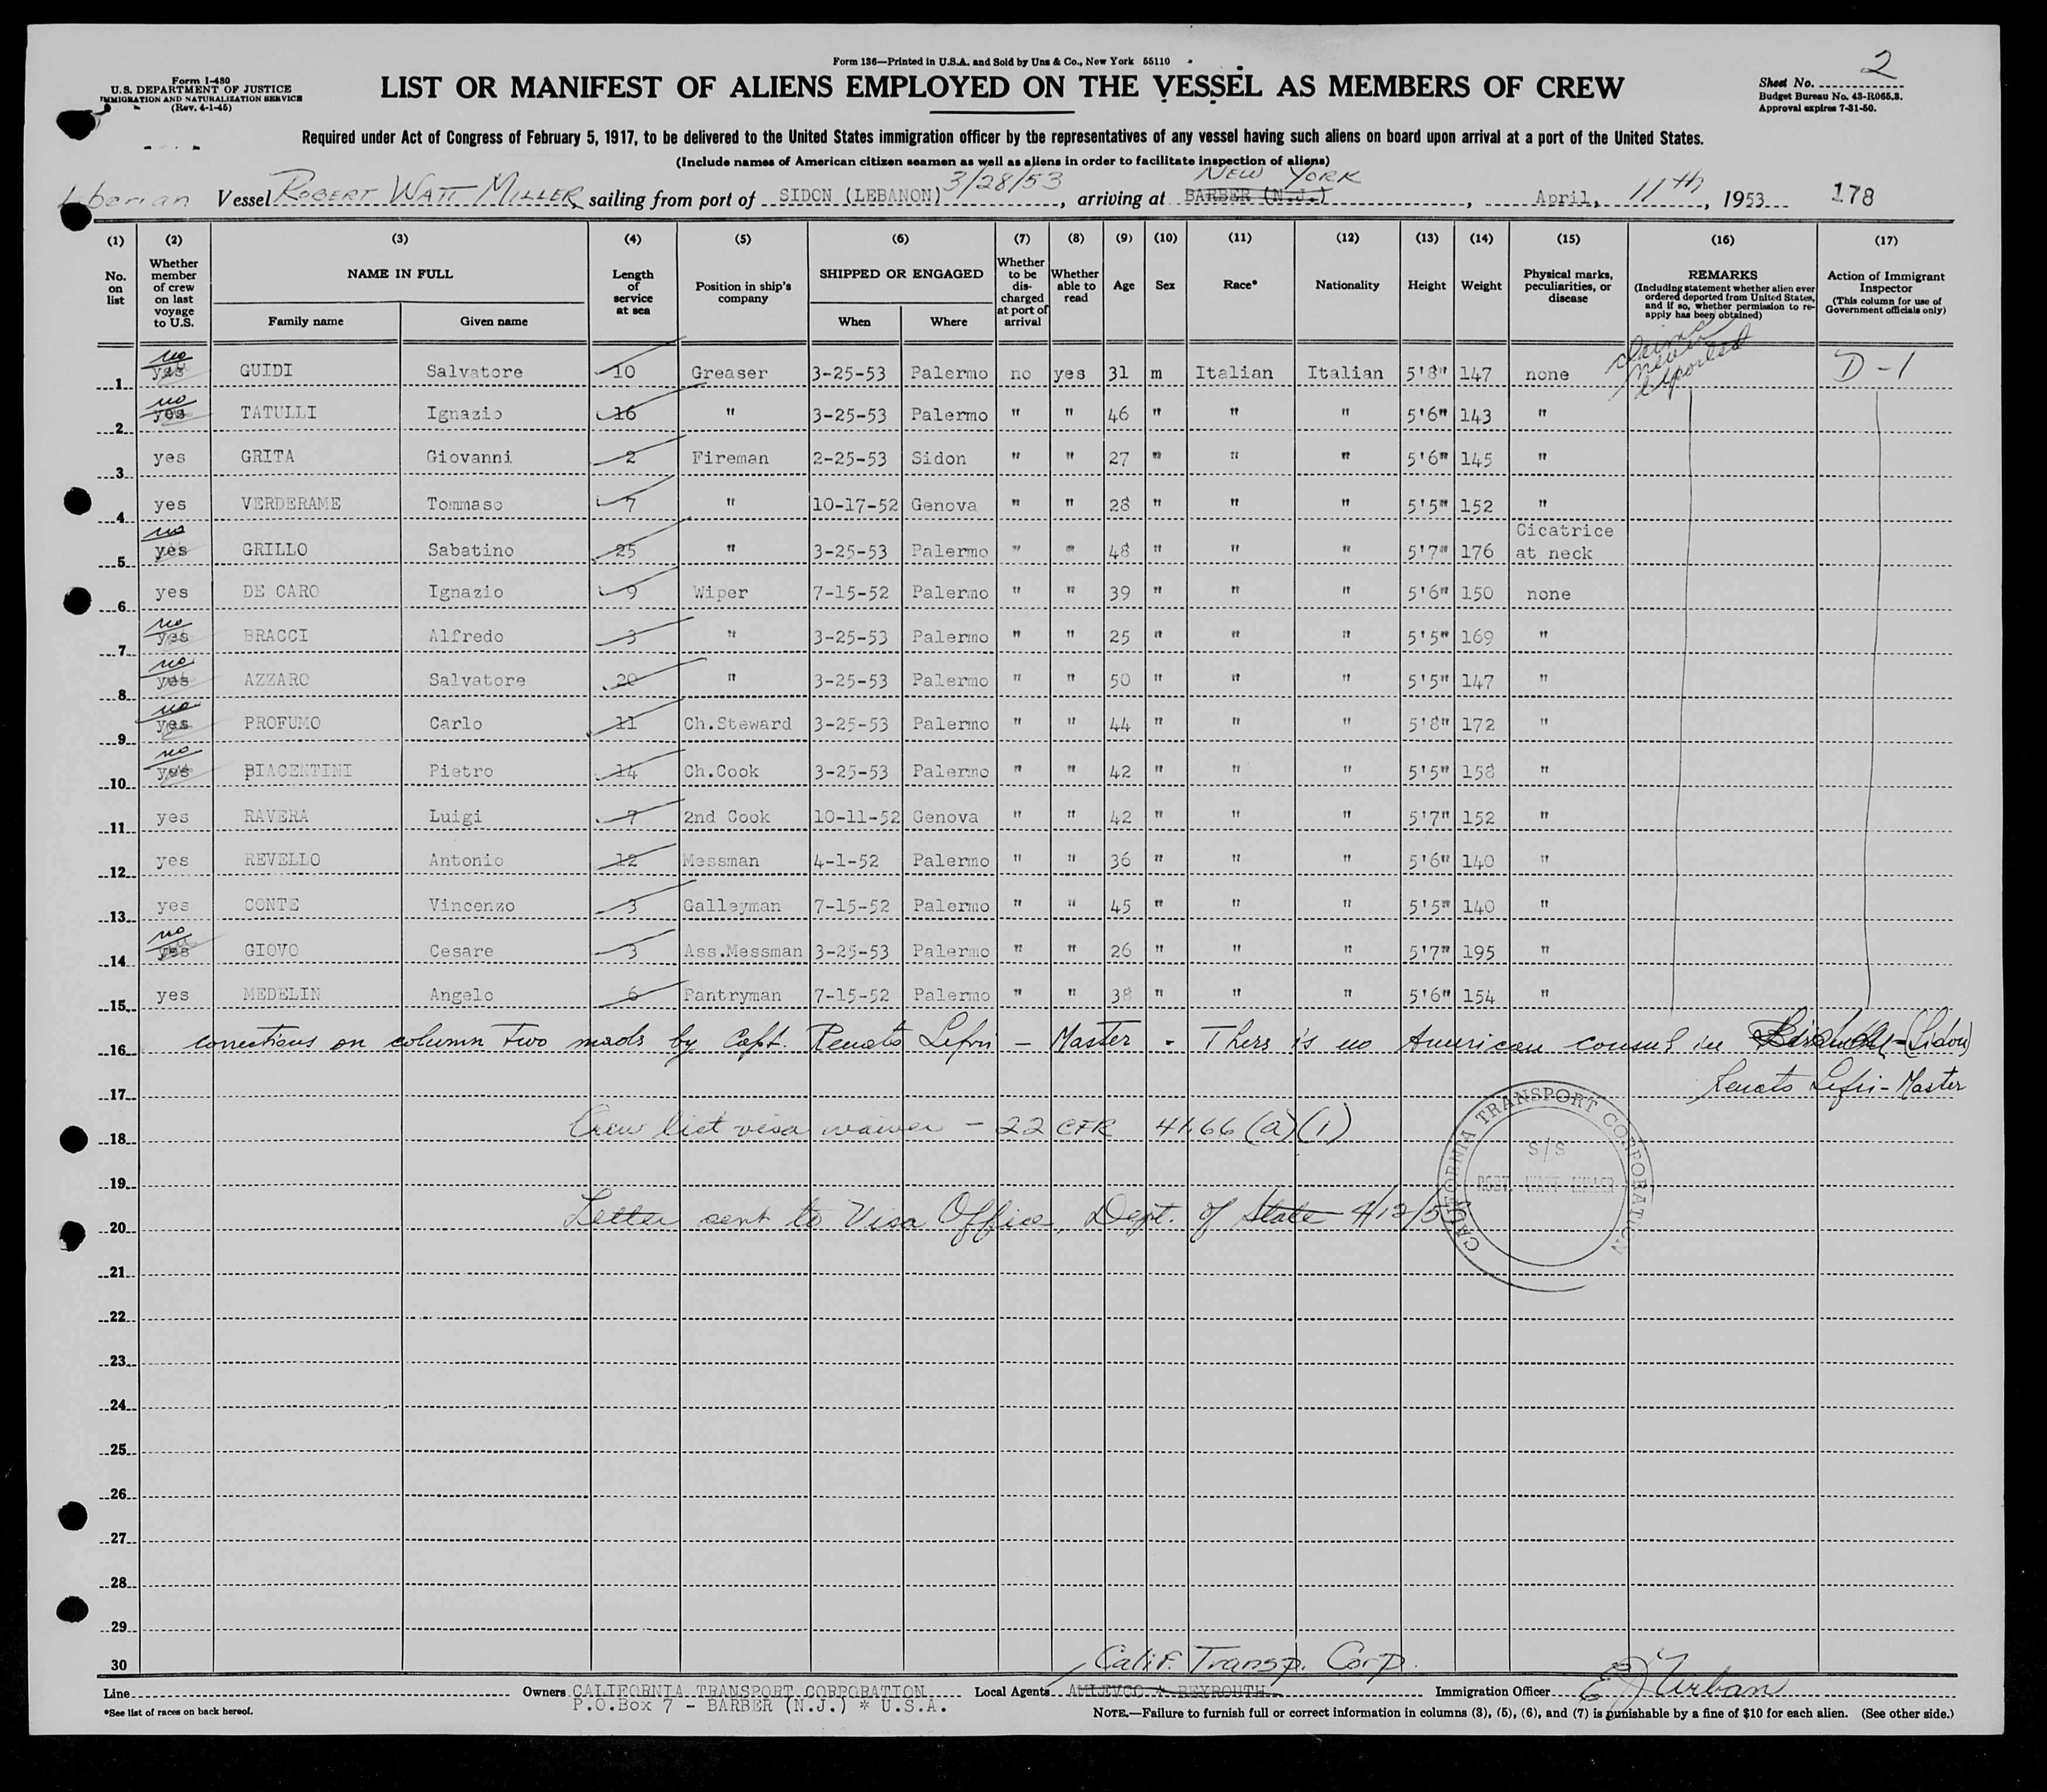 Form 136—Printed in U.S.A. and Sold by Unz & Co., New York 55110
Form I-480
U.S. DEPARTMENT OF JUSTICE
IMMIGRATION AND NATURALIZATION SERVICE
(Rev. 4-1-45)
LIST OR MANIFEST OF ALIENS EMPLOYED ON THE VESSEL AS MEMBERS OF CREW
Sheet No. 2
Budget Bureau No. 43-R065.3.
Approval expires 7-31-50.
Required under Act of Congress of February 5, 1917, to be delivered to the United States immigration officer by the representatives of any vessel having such aliens on board upon arrival at a port of the United States.
(Include names of American citizen seamen as well as aliens in order to facilitate inspection of aliens)
Liberian Vessel ROBERT WATT MILLER, sailing from port of SIDON (LEBANON) 3/28/53, arriving at BARBER (N.J.) NEW YORK, April, 11th, 1953 178
(1) (2) (3) (4) (5) (6) (7) (8) (9) (10) (11) (12) (13) (14) (15) (16) (17)
No. on list
Whether member of crew on last voyage to U.S.
NAME IN FULL
Family name Given name
Length of service at sea
Position in ship's company
SHIPPED OR ENGAGED
When Where
Whether to be discharged at port of arrival
Whether able to read
Age
Sex
Race*
Nationality
Height
Weight
Physical marks, peculiarities, or disease
REMARKS
(Including statement whether alien ever ordered deported from United States, and if so, whether permission to reapply has been obtained)
Action of Immigrant Inspector
(This column for use of Government officials only)
1 yes no GUIDI Salvatore 10 Greaser 3-25-53 Palermo no yes 31 m Italian Italian 5'8" 147 none never deported D-1
2 yes no TATULLI Ignazio 16 " 3-25-53 Palermo " " 46 " " " 5'6" 143 "
3 yes GRITA Giovanni 2 Fireman 2-25-53 Sidon " " 27 " " " 5'6" 145 "
4 yes VERDERAME Tommaso 7 " 10-17-52 Genova " " 28 " " " 5'5" 152 "
5 yes no GRILLO Sabatino 25 " 3-25-53 Palermo " " 48 " " " 5'7" 176 Cicatrice at neck
6 yes DE CARO Ignazio 9 Wiper 7-15-52 Palermo " " 39 " " " 5'6" 150 none
7 yes no BRACCI Alfredo 3 " 3-25-53 Palermo " " 25 " " " 5'5" 169 "
8 yes no AZZARO Salvatore 20 " 3-25-53 Palermo " " 50 " " " 5'5" 147 "
9 yes no PROFUMO Carlo 11 Ch.Steward 3-25-53 Palermo " " 44 " " " 5'8" 172 "
10 yes no PIACENTINI Pietro 14 Ch.Cook 3-25-53 Palermo " " 42 " " " 5'5" 158 "
11 yes RAVERA Luigi 7 2nd Cook 10-11-52 Genova " " 42 " " " 5'7" 152 "
12 yes REVELLO Antonio 12 Messman 4-1-52 Palermo " " 36 " " " 5'6" 140 "
13 yes CONTE Vincenzo 3 Galleyman 7-15-52 Palermo " " 45 " " " 5'5" 140 "
14 yes no GIOVO Cesare 3 Ass.Messman 3-25-53 Palermo " " 26 " " " 5'7" 195 "
15 yes MEDELIN Angelo 6 Pantryman 7-15-52 Palermo " " 38 " " " 5'6" 154 "
16 corrections on column two made by Capt. Renato Lefri - Master - There is no American consul in (Sidon)
17 Renato Lefri - Master
18 Crew list visa waiver - 22 CFR 41.66 (a)(1)
19
20 Letter sent to Visa Office, Dept. of State 4/12/53
CALIFORNIA TRANSPORT CORPORATION
S/S
ROBT. WATT MILLER
21
22
23
24
25
26
27
28
29
30
Line
Owners CALIFORNIA TRANSPORT CORPORATION
P.O.Box 7 - BARBER (N.J.) * U.S.A.
Calif. Transp. Corp.
Local Agents AMLEVCO * BEYROUTH
Immigration Officer E J Urban
*See list of races on back hereof.
NOTE.—Failure to furnish full or correct information in columns (3), (5), (6), and (7) is punishable by a fine of $10 for each alien. (See other side.)